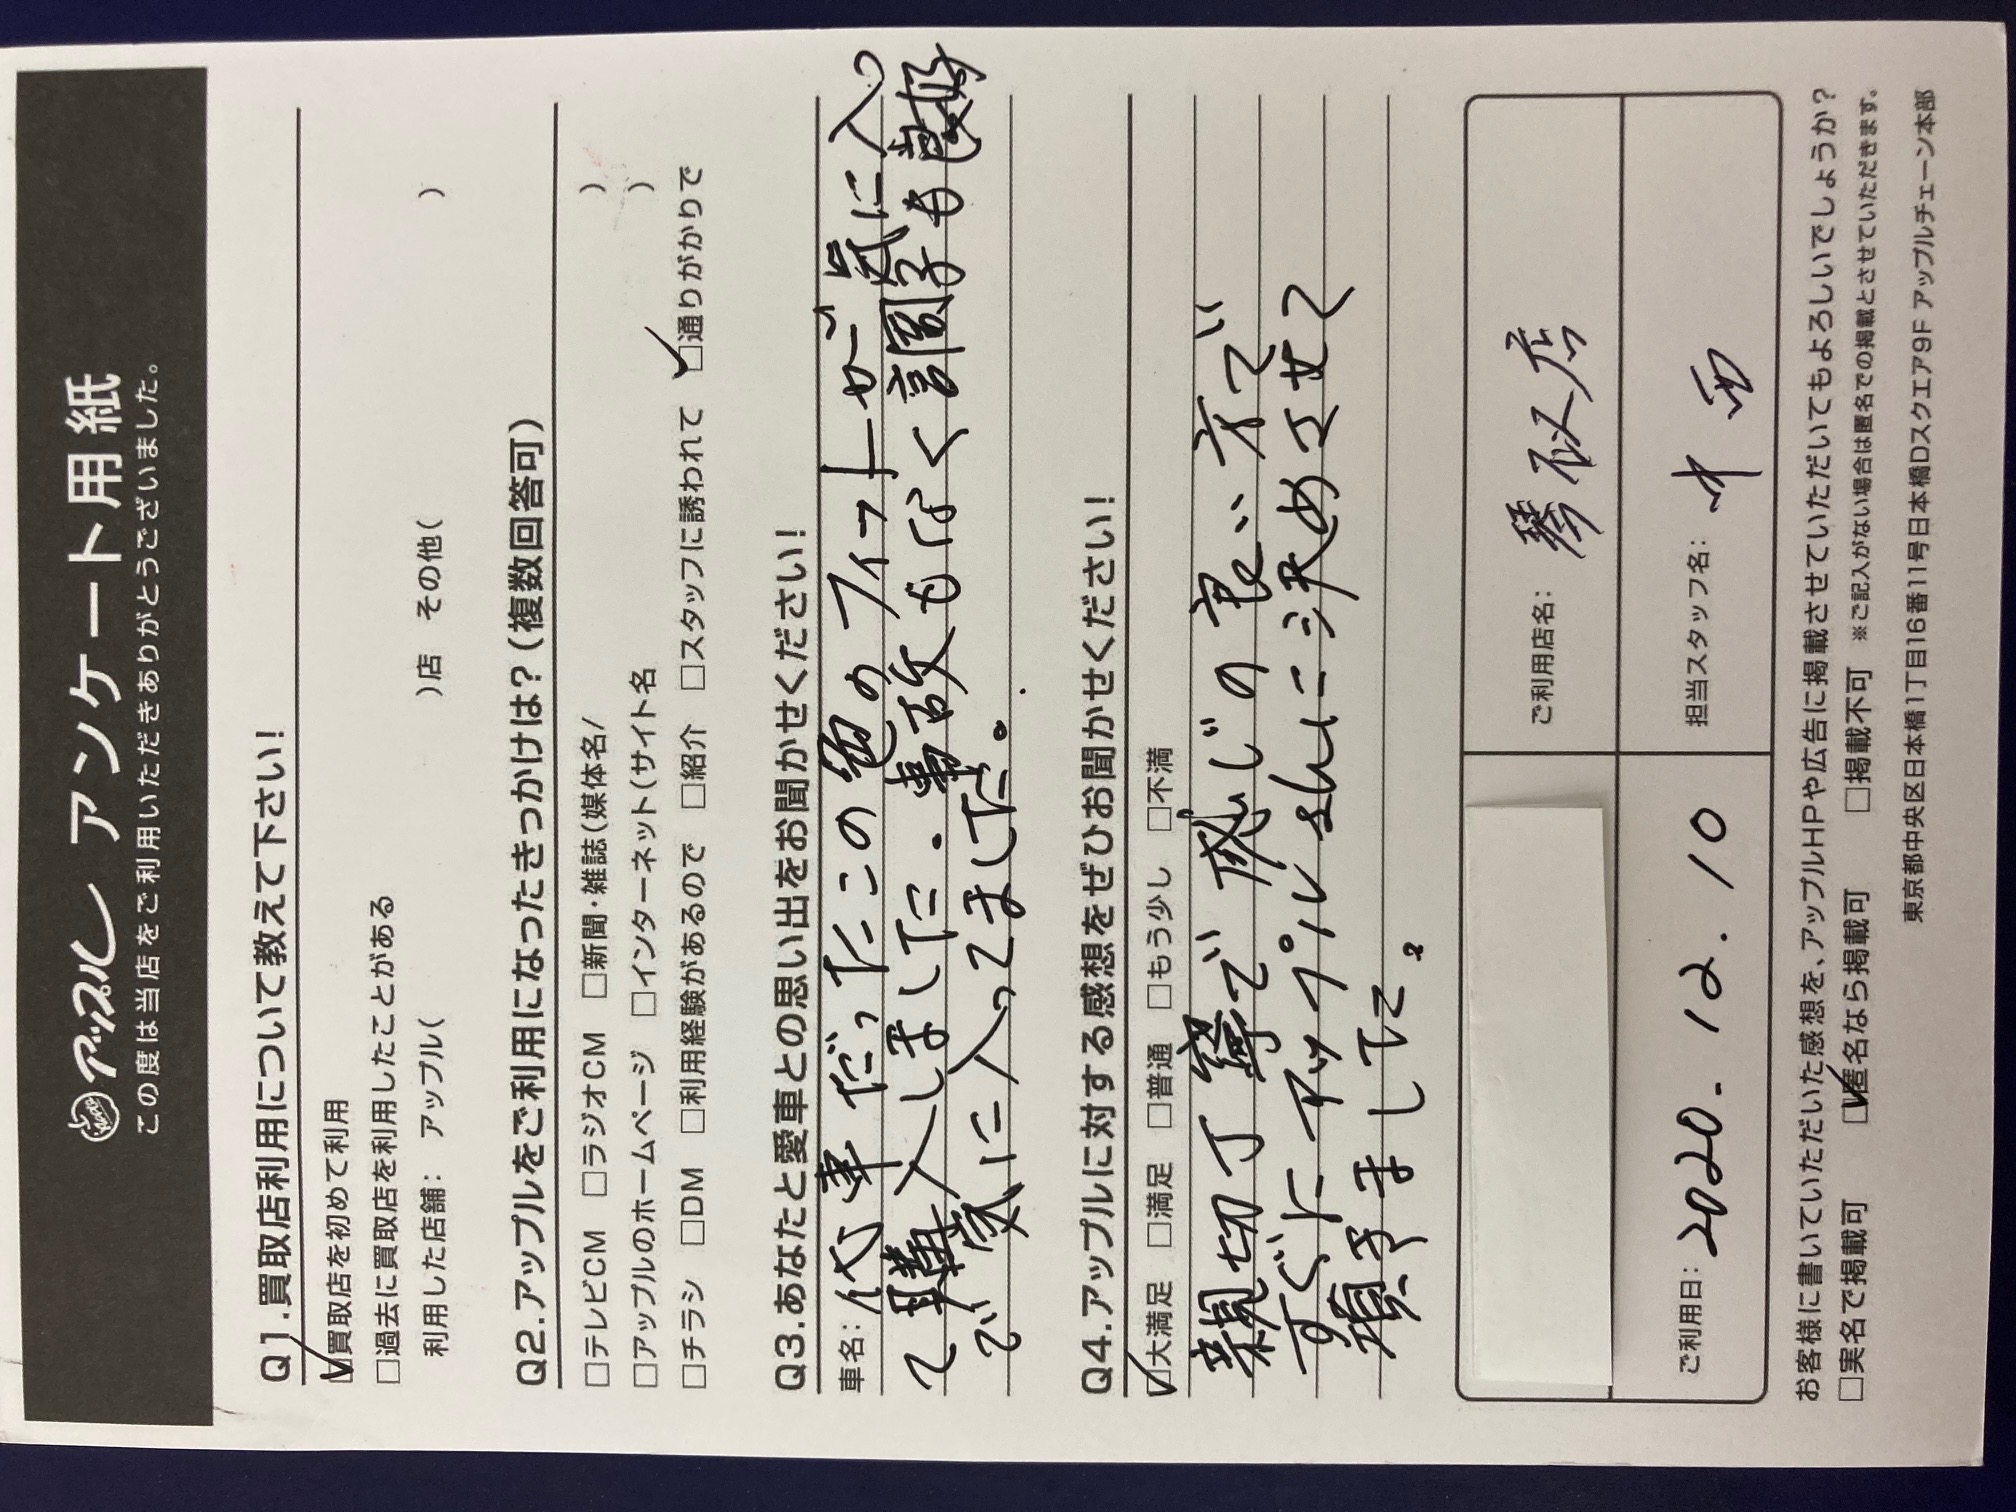 アップル アンケート用紙
この度は当店をご利用いただきありがとうございました。
Q1.買取店利用について教えて下さい!
☑買取店を初めて利用
□過去に買取店を利用したことがある
利用した店舗: アップル( )店 その他( )
Q2.アップルをご利用になったきっかけは?(複数回答可)
□テレビCM □ラジオCM □新聞・雑誌(媒体名/ )
□アップルのホームページ □インターネット(サイト名 )
□チラシ □DM □利用経験があるので □紹介 □スタッフに誘われて ☑通りがかりで
Q3.あなたと愛車との思い出をお聞かせください!
車名: 代車だったこの色のフィットが気に入っ
て購入しました。事故もなく調子も良好
で気に入ってました。
Q4.アップルに対する感想をぜひお聞かせください!
☑大満足 □満足 □普通 □もう少し □不満
親切丁寧で感じの良い方で
すぐにアップルさんに決めさせて
頂きました。
ご利用店名: 琴似店
ご利用日: 2020.12.10
担当スタッフ名: 中西
お客様に書いていただいた感想を、アップルHPや広告に掲載させていただいてもよろしいでしょうか?
□実名で掲載可 ☑匿名なら掲載可 □掲載不可 ※ご記入がない場合は匿名での掲載とさせていただきます。
東京都中央区日本橋1丁目16番11号日本橋Dスクエア9F アップルチェーン本部